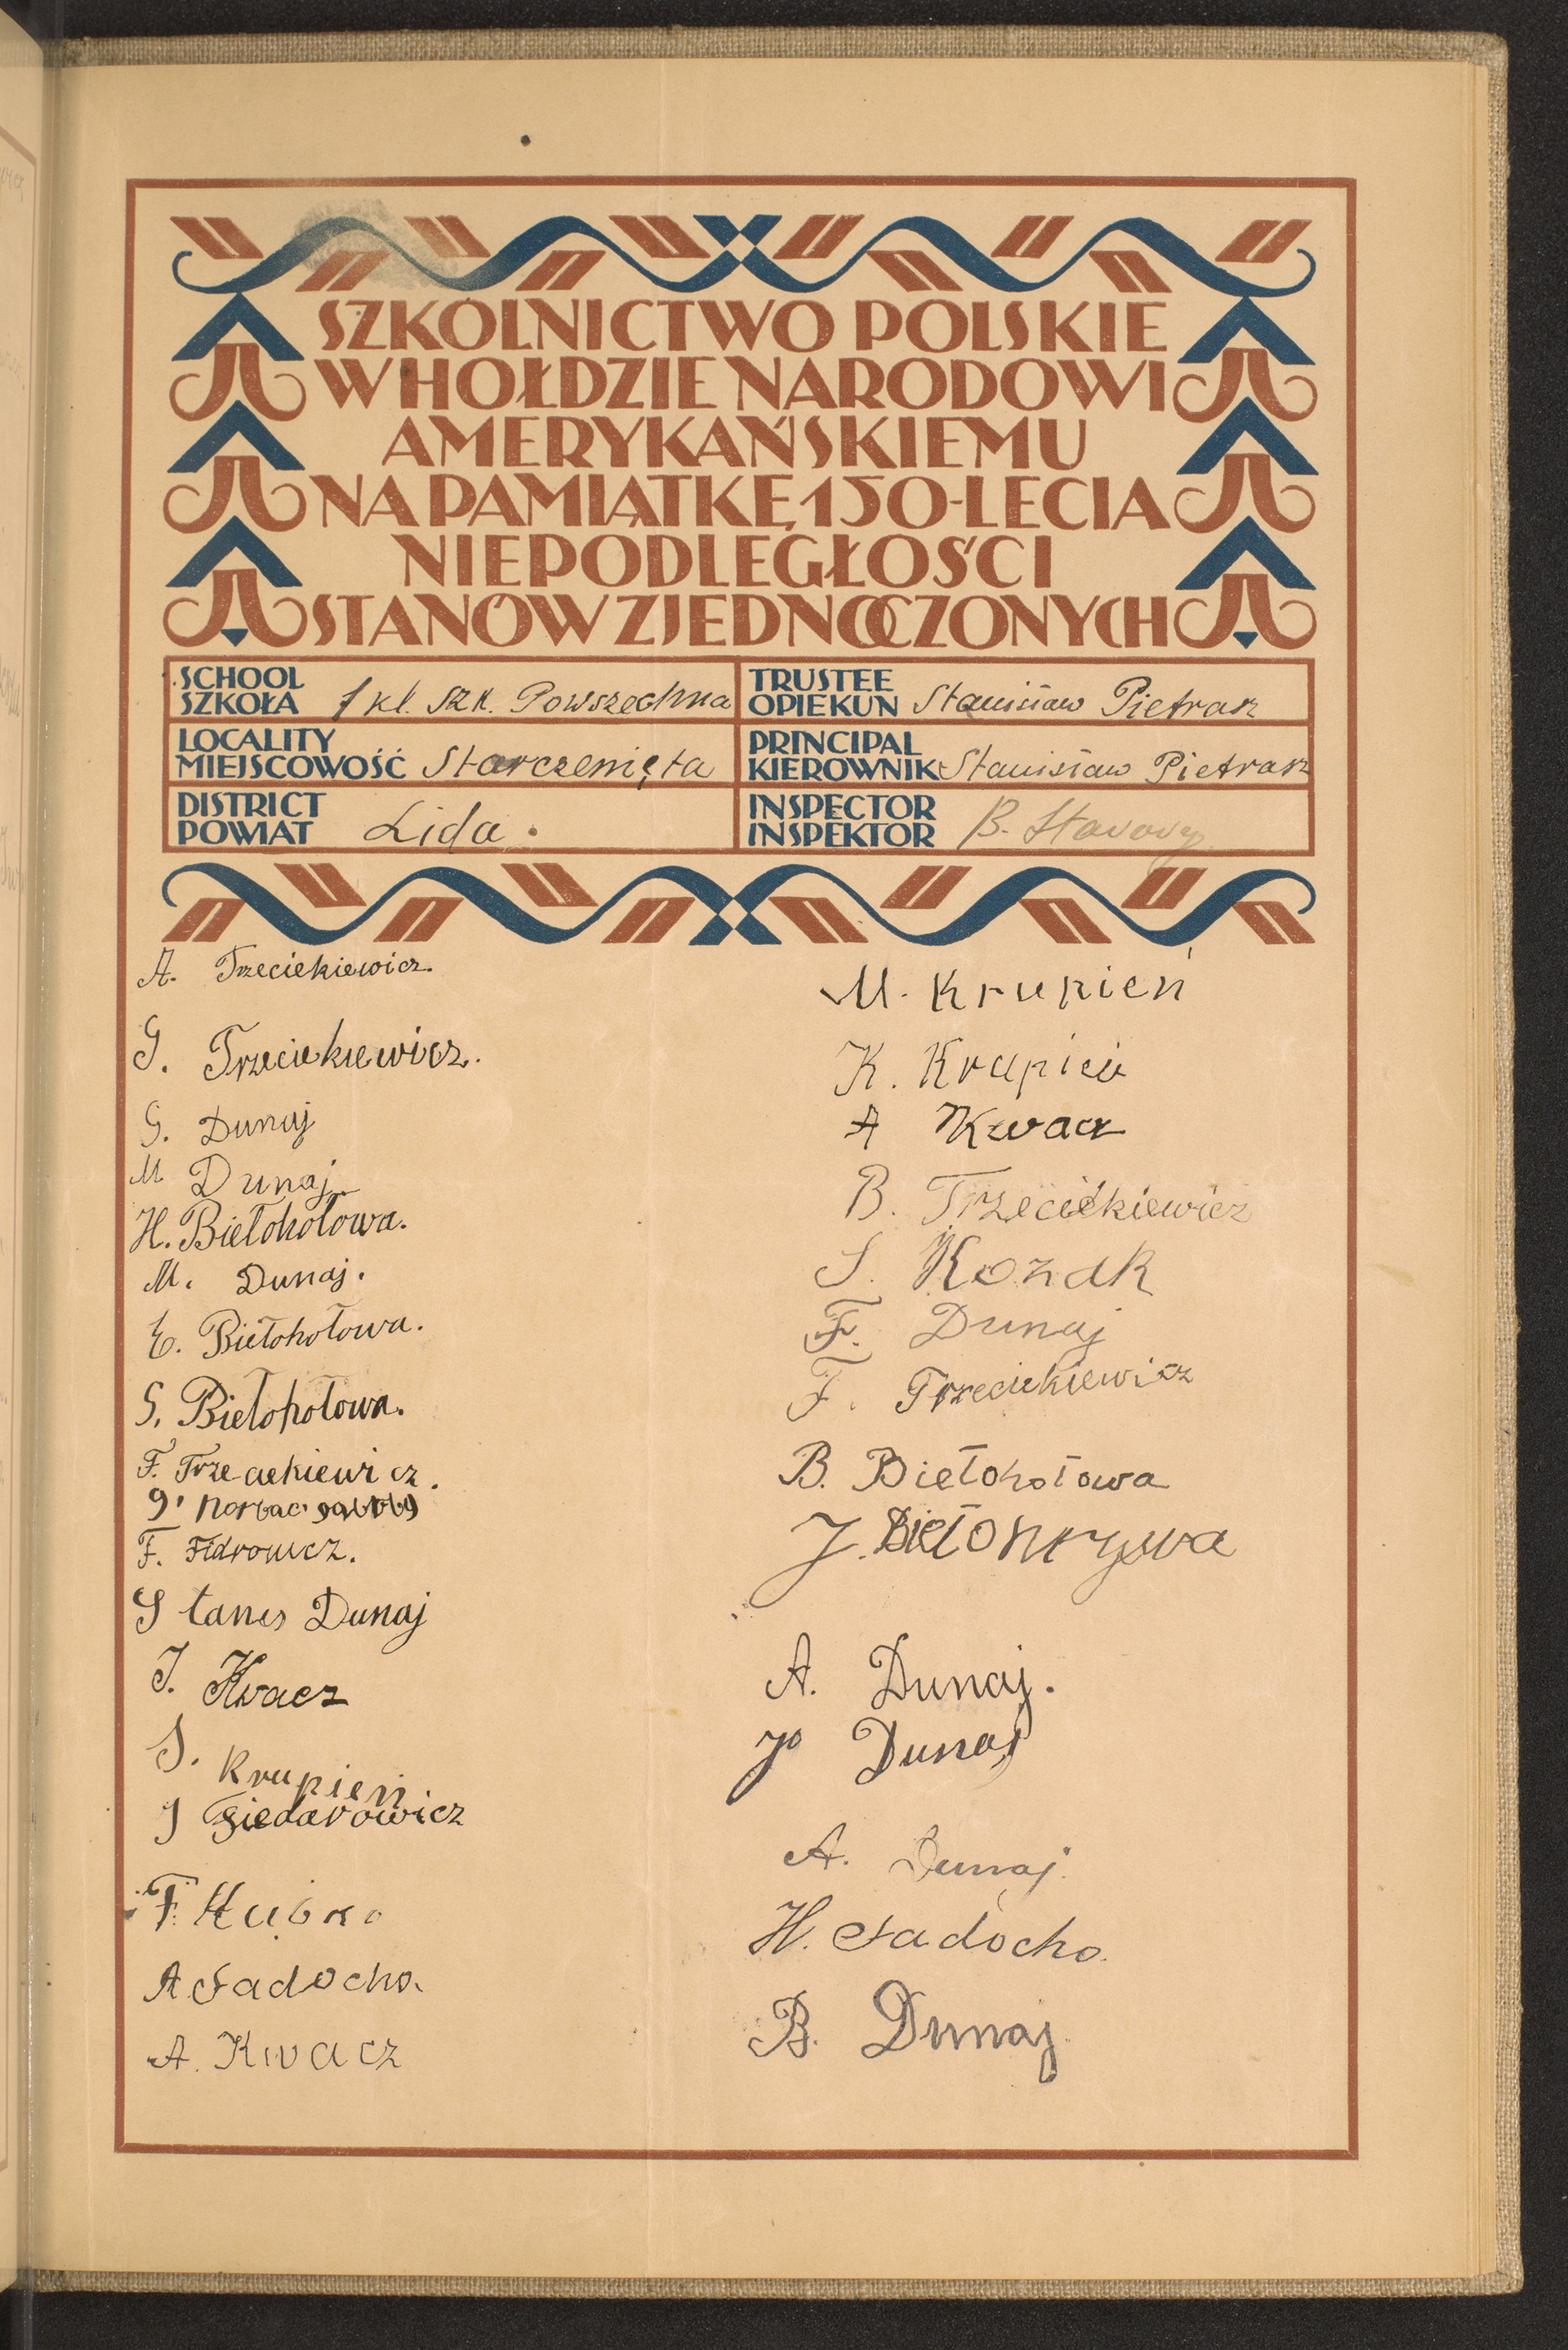 SZKOLNICTWO POLSKIE
W HOŁDZIE NARODOWI
AMERYKAŃSKIEMU
NA PAMIĄTKĘ 150-LECIA
NIEPODLEGŁOŚCI
STANÓW ZJEDNOCZONYCH
SCHOOL
SZKOŁA 1 kl. Szk. Powszechna
TRUSTEE
OPIEKUN Stanisław Pietrasz
LOCALITY
MIEJSCOWOŚĆ Starczenięta
PRINCIPAL
KIEROWNIK Stanisław Pietrasz
DISTRICT
POWIAT Lida.
INSPECTOR
INSPEKTOR B.
A. Trzeciekiewicz.
G. Trzeciekiewicz.
G. Dunaj
M Dunaj
H. Biełohołowa.
M. Dunaj.
E. Biełohołowa.
S. Biełohołowa.
F. Trzeciekiewicz.
F.
Dunaj
J. Kwacz
S. Krupień
J Giedarowicz
F.
A Sadocho.
A. Kwacz
M. Krupień
K. Krupień
A Kwacz
B. Trzeciekiewicz
S. Kozak
F. Dunaj
F. Trzeciekiewicz
B. Biełohołowa
J.
A. Dunaj.
J Dunaj
A. Dunaj.
H. Sadocho.
B. Dunaj.